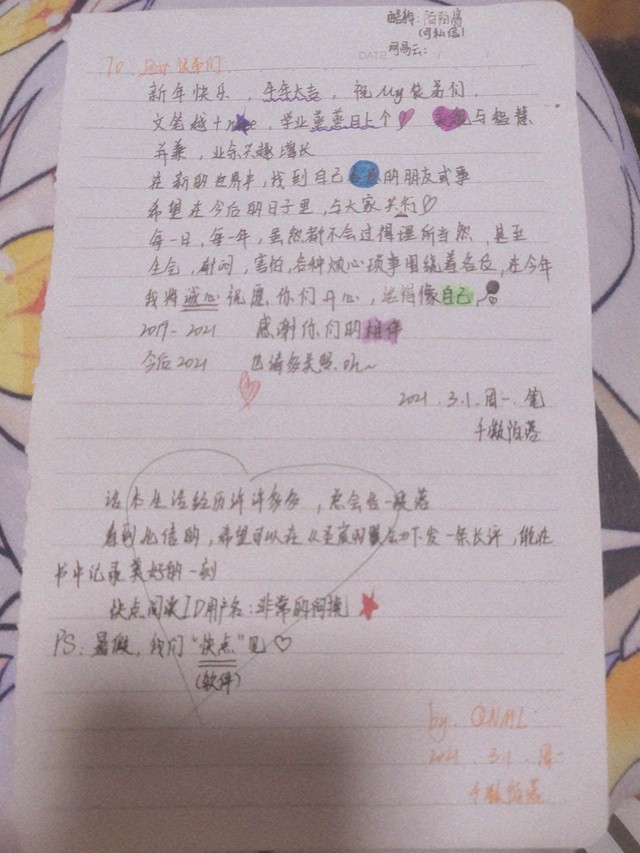 (可私信)
网易云:
DATE
To
新年快乐,牛年大吉,祝My 们,
文笔越十 ,学业蒸蒸日上个♡ 与智慧
并兼,业余兴趣增长
在新的世界中,找到自己 的朋友或事
希望在今后的日子里,与大家共行♡
每一日,每一年,虽然都不会过得理所当然,甚至
生气,郁闷,害怕,各种烦心琐事围绕着各位,在今年
我将诚心祝愿你们开心,活得像自己,
2019-2021 感谢你们的陪伴
今后2021 也请多关照.Oh~
2021.3.1.周一.笔
千 陌落
话本生活经历许许多多,总会告一段落
看到此信的,希望可以在 下发一条长评,能在
书中记录美好的一刻
快点阅读ID用户名:非常的 ★
PS:暑假,我们“快点”见♡
(软件)
by. QNML
2021.3.1.周一
千 陌落